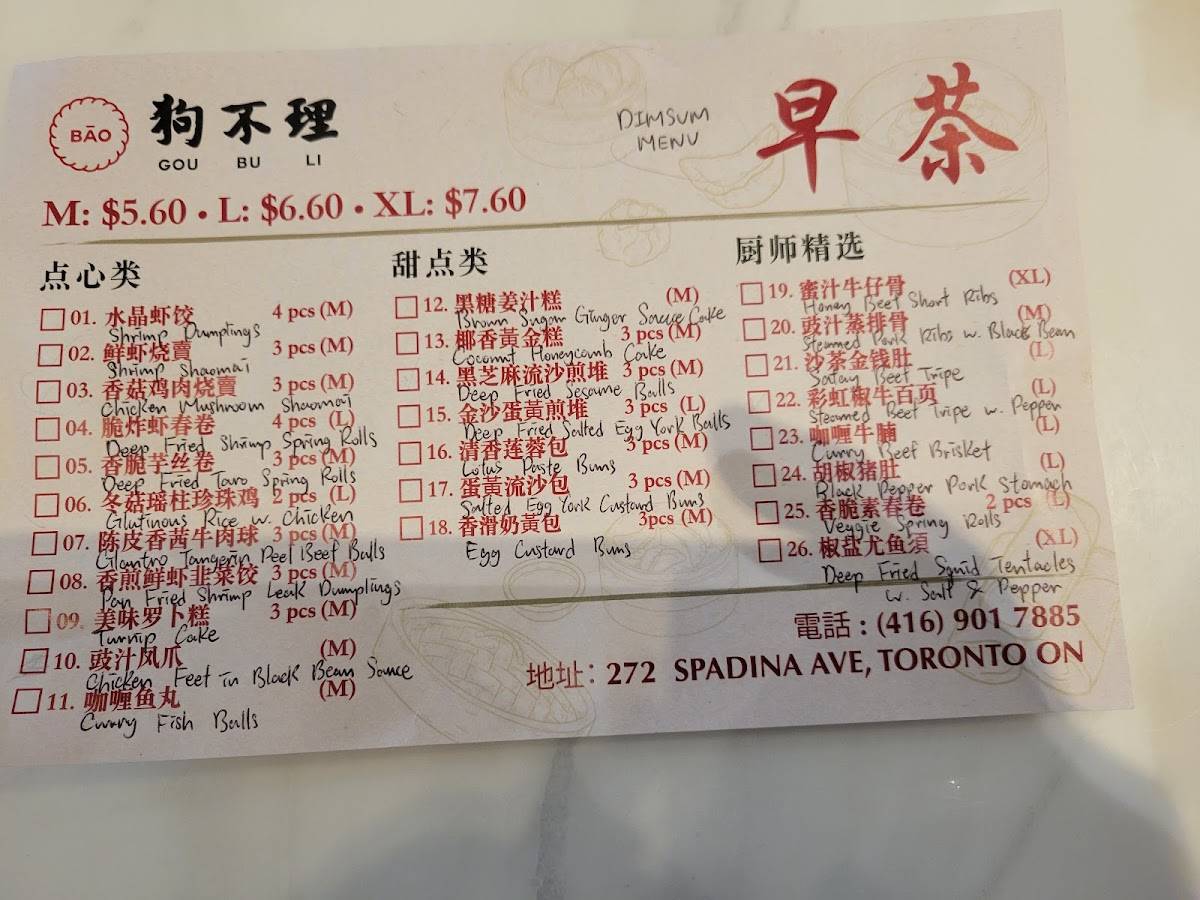 BĀO
狗不理
GOU BU LI
DIMSUM
MENU
早茶
M: $5.60 • L: $6.60 • XL: $7.60
点心类
01. 水晶虾饺 4 pcs (M)
Shrimp Dumplings
02. 鲜虾烧賣 3 pcs (M)
Shrimp Shaomai
03. 香菇鸡肉烧賣 3 pcs (M)
Chicken Mushroom Shaomai
04. 脆炸虾春卷 4 pcs (L)
Deep Fried Shrimp Spring Rolls
05. 香脆芋丝卷 3 pcs (M)
Deep Fried Taro Spring Rolls
06. 冬菇瑶柱珍珠鸡 2 pcs (L)
Glutinous Rice w. Chicken
07. 陈皮香茜牛肉球 3 pcs (M)
Cilantro Tangerin Peel Beef Balls
08. 香煎鲜虾韭菜饺 3 pcs (M)
Pan Fried Shrimp Leak Dumplings
09. 美味罗卜糕 3 pcs (M)
Turnip Cake
10. 豉汁凤爪 (M)
Chicken Feet in Black Bean Sauce
11. 咖喱鱼丸 (M)
Curry Fish Balls
甜点类
12. 黑糖姜汁糕 (M)
Brown Sugar Ginger Sauce Cake
13. 椰香黃金糕 3 pcs (M)
Coconut Honeycomb Cake
14. 黑芝麻流沙煎堆 3 pcs (M)
Deep Fried Sesame Balls
15. 金沙蛋黃煎堆 3 pcs (L)
Deep Fried Salted Egg York Balls
16. 清香莲蓉包 3 pcs (M)
Lotus Paste Buns
17. 蛋黃流沙包 3 pcs (M)
Salted Egg York Custard Buns
18. 香滑奶黃包 3pcs (M)
Egg Custard Buns
厨师精选
19. 蜜汁牛仔骨 (XL)
Honey Beef Short Ribs
20. 豉汁蒸排骨 (M)
Steamed Pork Ribs w. Black Bean
21. 沙茶金钱肚 (L)
Satay Beef Tripe
22. 彩虹椒牛百页 (L)
Steamed Beef Tripe w. Pepper
23. 咖喱牛腩 (L)
Curry Beef Brisket
24. 胡椒猪肚 (L)
Black Pepper Pork Stomach
25. 香脆素春卷 2 pcs (L)
Veggie Spring Rolls
26. 椒盐尤鱼须 (XL)
Deep Fried Squid Tentacles
w. Salt & Pepper
電話 : (416) 901 7885
地址: 272 SPADINA AVE, TORONTO ON